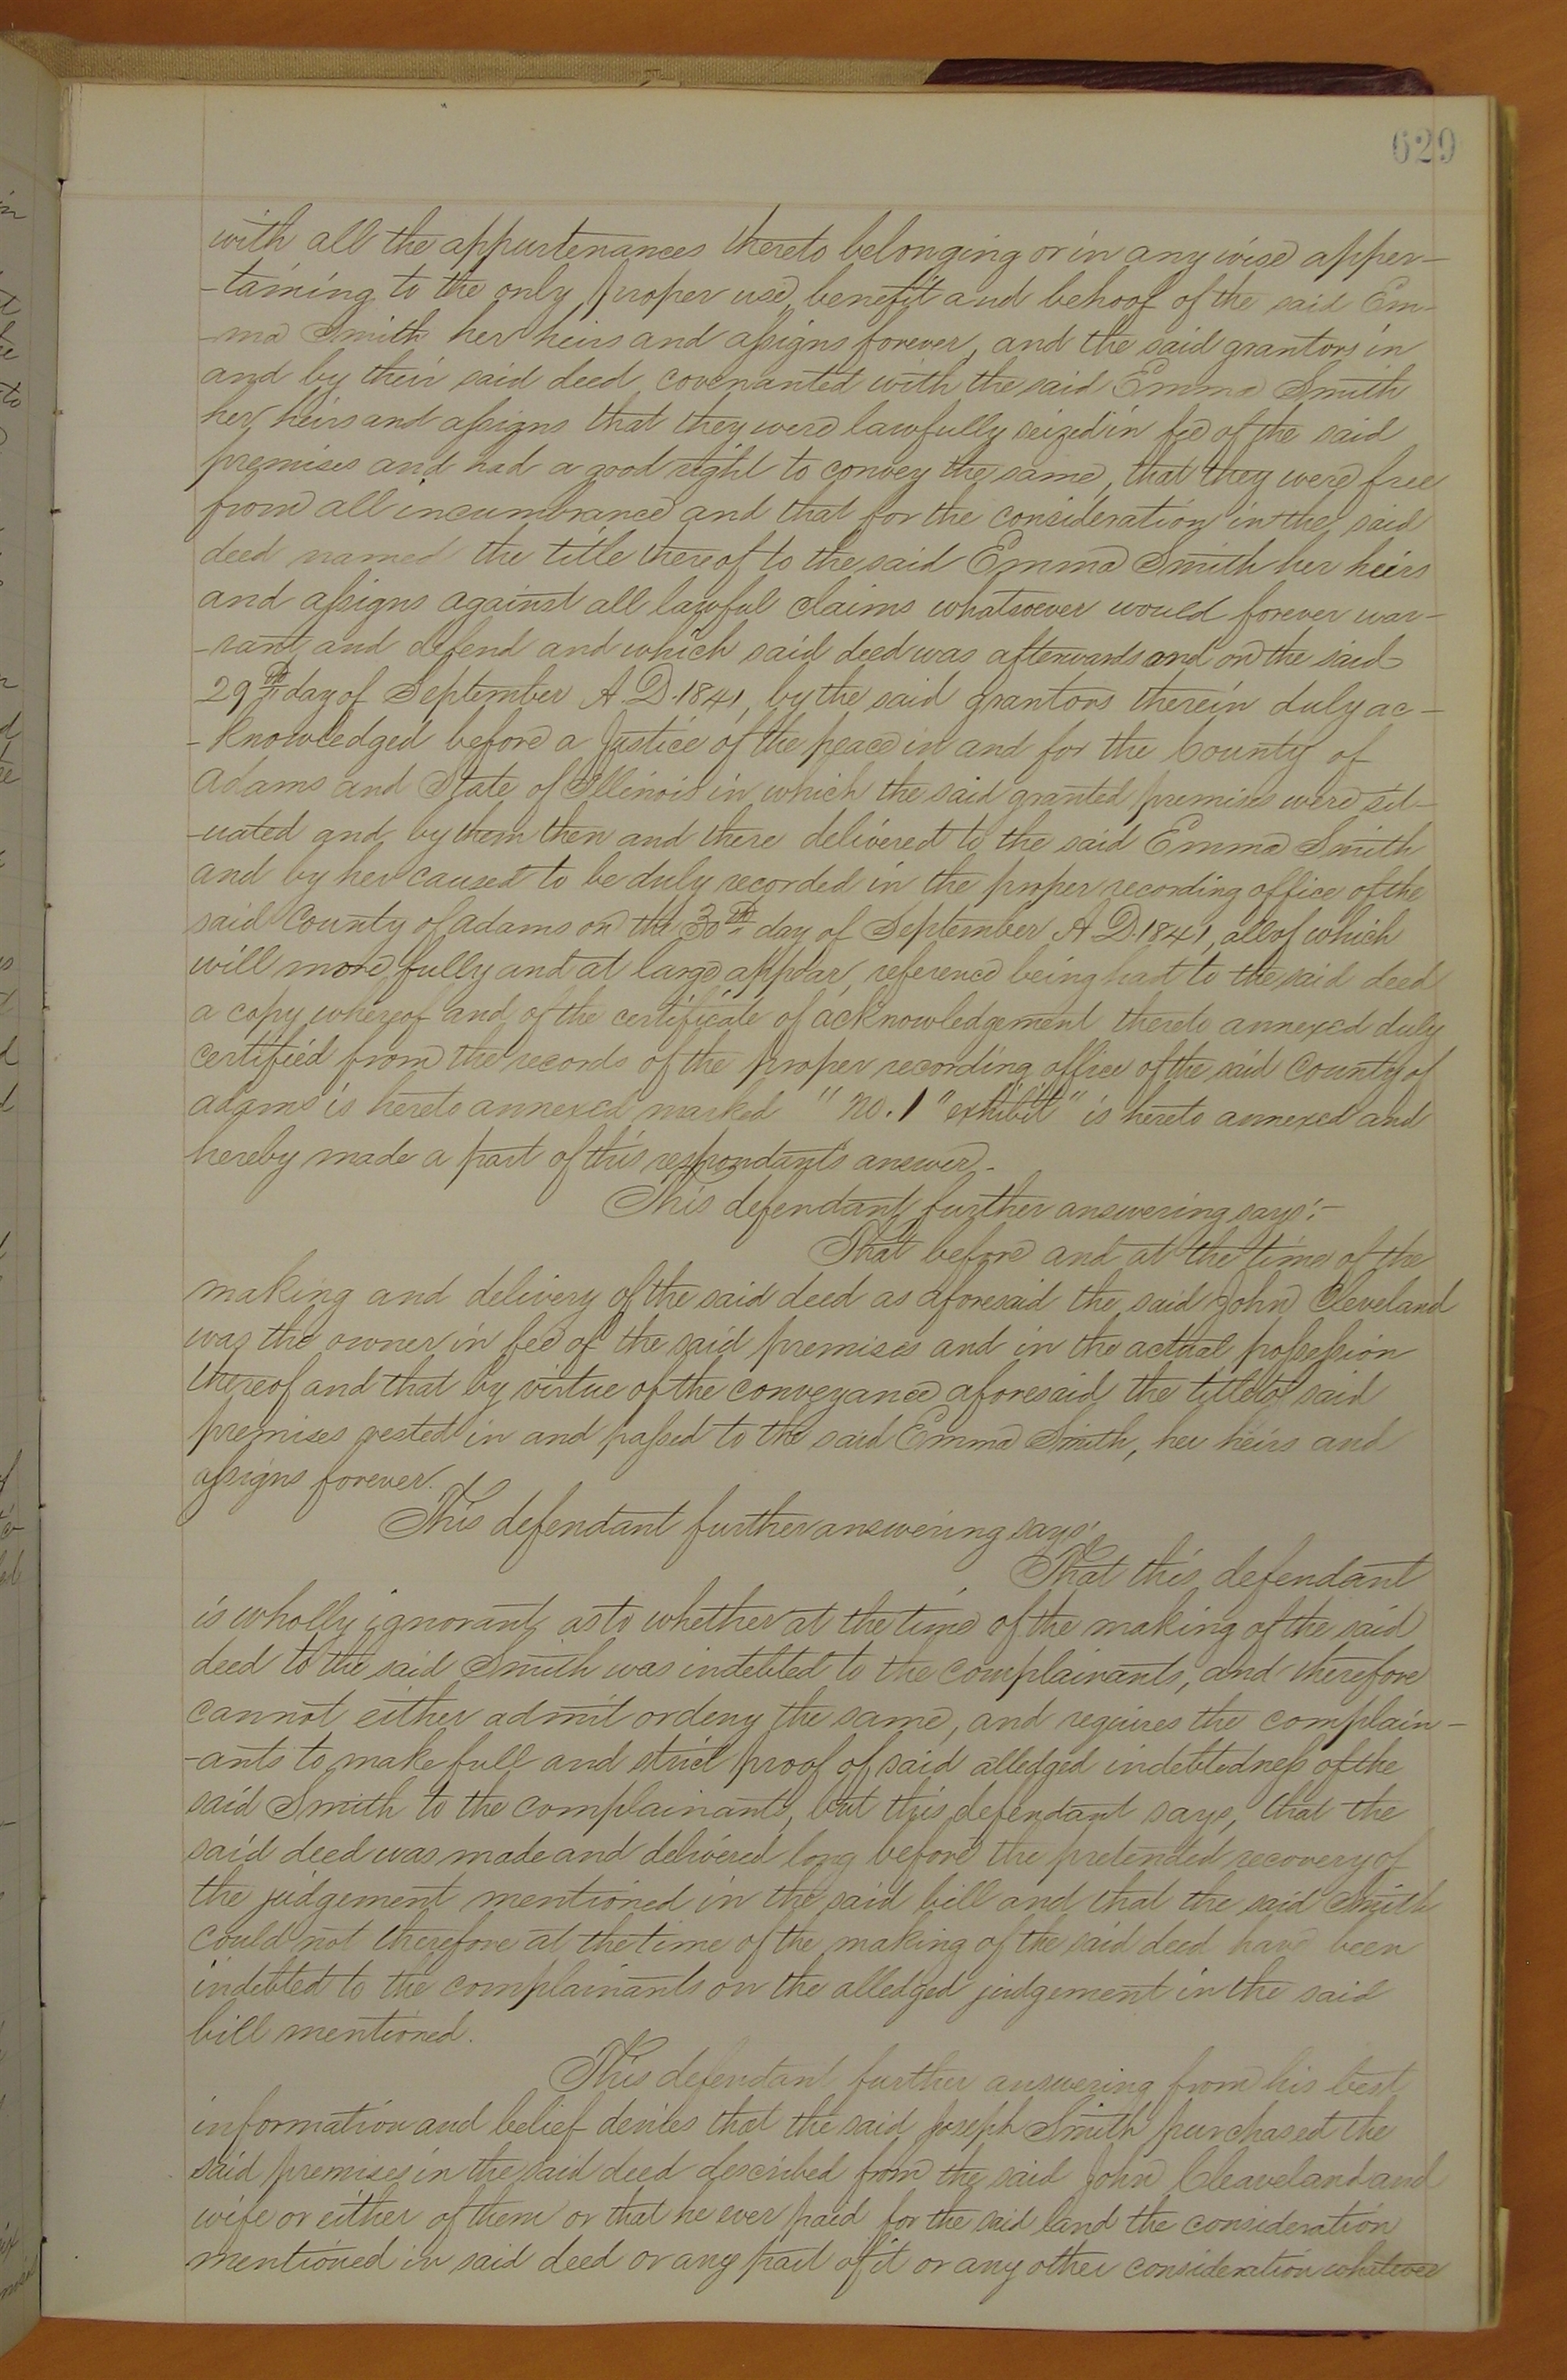 629
with all the appurtenances thereto belonging or in any wise apper-
-taining to the only proper use, benefit and behoof of the said Em-
-ma Smith her heirs and assigns forever, and the said grantors in
and by their said deed, covenanted with the said Emma Smith
her heirs and assigns that they were lawfully seized in fee of the said
premises and had a good right to convey the same, that they were free
from all incumbrance and that for the consideration in the said
deed named the title thereof to the said Emma Smith her heirs
and assigns against all lawful claims whatsoever would forever war-
-rant and defend and which said deed was afterwards and on the said
29th day of September A.D. 1841, by the said grantors therein duly ac-
-knowledged before a Justice of the peace in and for the County of
Adams and State of Illinois in which the said granted premises were sit-
-uated and by them then and there delivered to the said Emma Smith
and by her caused to be duly recorded in the proper recording office of the
said County of Adams on the 30th day of September A D. 1841, all of which
will more fully and at large appear, reference being had to the said deed
a copy whereof and of the certificate of acknowledgement thereto annexed duly
certified from the records of the proper recording office of the said County of
Adams is hereto annexed marked "No. 1 "exhibit" is hereto annexed and
hereby made a part of this respondants answer.
This defendant further answering says:-
That before and at the time of the
making and delivery of the said deed as aforesaid the said John Cleveland
was the owner in fee of the said premises and in the actual possession
thereof and that by virtue of the conveyance aforesaid the title to said
premises vested in and passed to the said Emma Smith, her heirs and
assigns forever.
This defendant further answering says:
That this defendant
is wholly ignorant as to whether at the time of the making of the said
deed to the said Smith was indebted to the complainants, and therefore
cannot either admit or deny the same, and reqiures the complain-
-ants to make full and strict proof of said alledged indebtedness of the
said Smith to the complainants, but this defendant says, that the
said deed was made and delivered long before the pretended recovery of
the judgement mentioned in the said bill and that the said Smith
could not therefore at the time of the making of the said deed have been
indebted to the complainants on the alledged judgement in the said
bill mentioned.
This defendant further answering from his best
information and belief denies that the said Joseph Smith purchased the
said premises in the said deed described from the said John Cleaveland and
wife or either of them or that he ever paid for the said land the consideration
mentioned in said deed or any part of it or any other consideration whatever